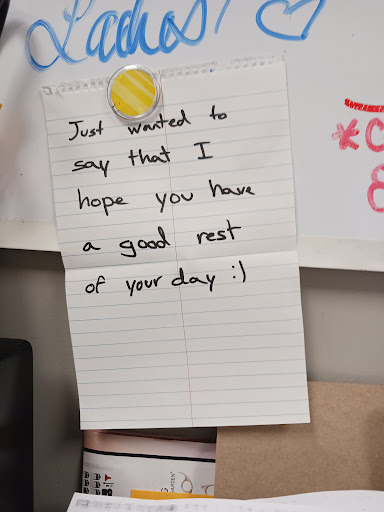 Ladies!
Just wanted to
say that I
hope you have
a good rest
of your day :)
*C
GARDEN